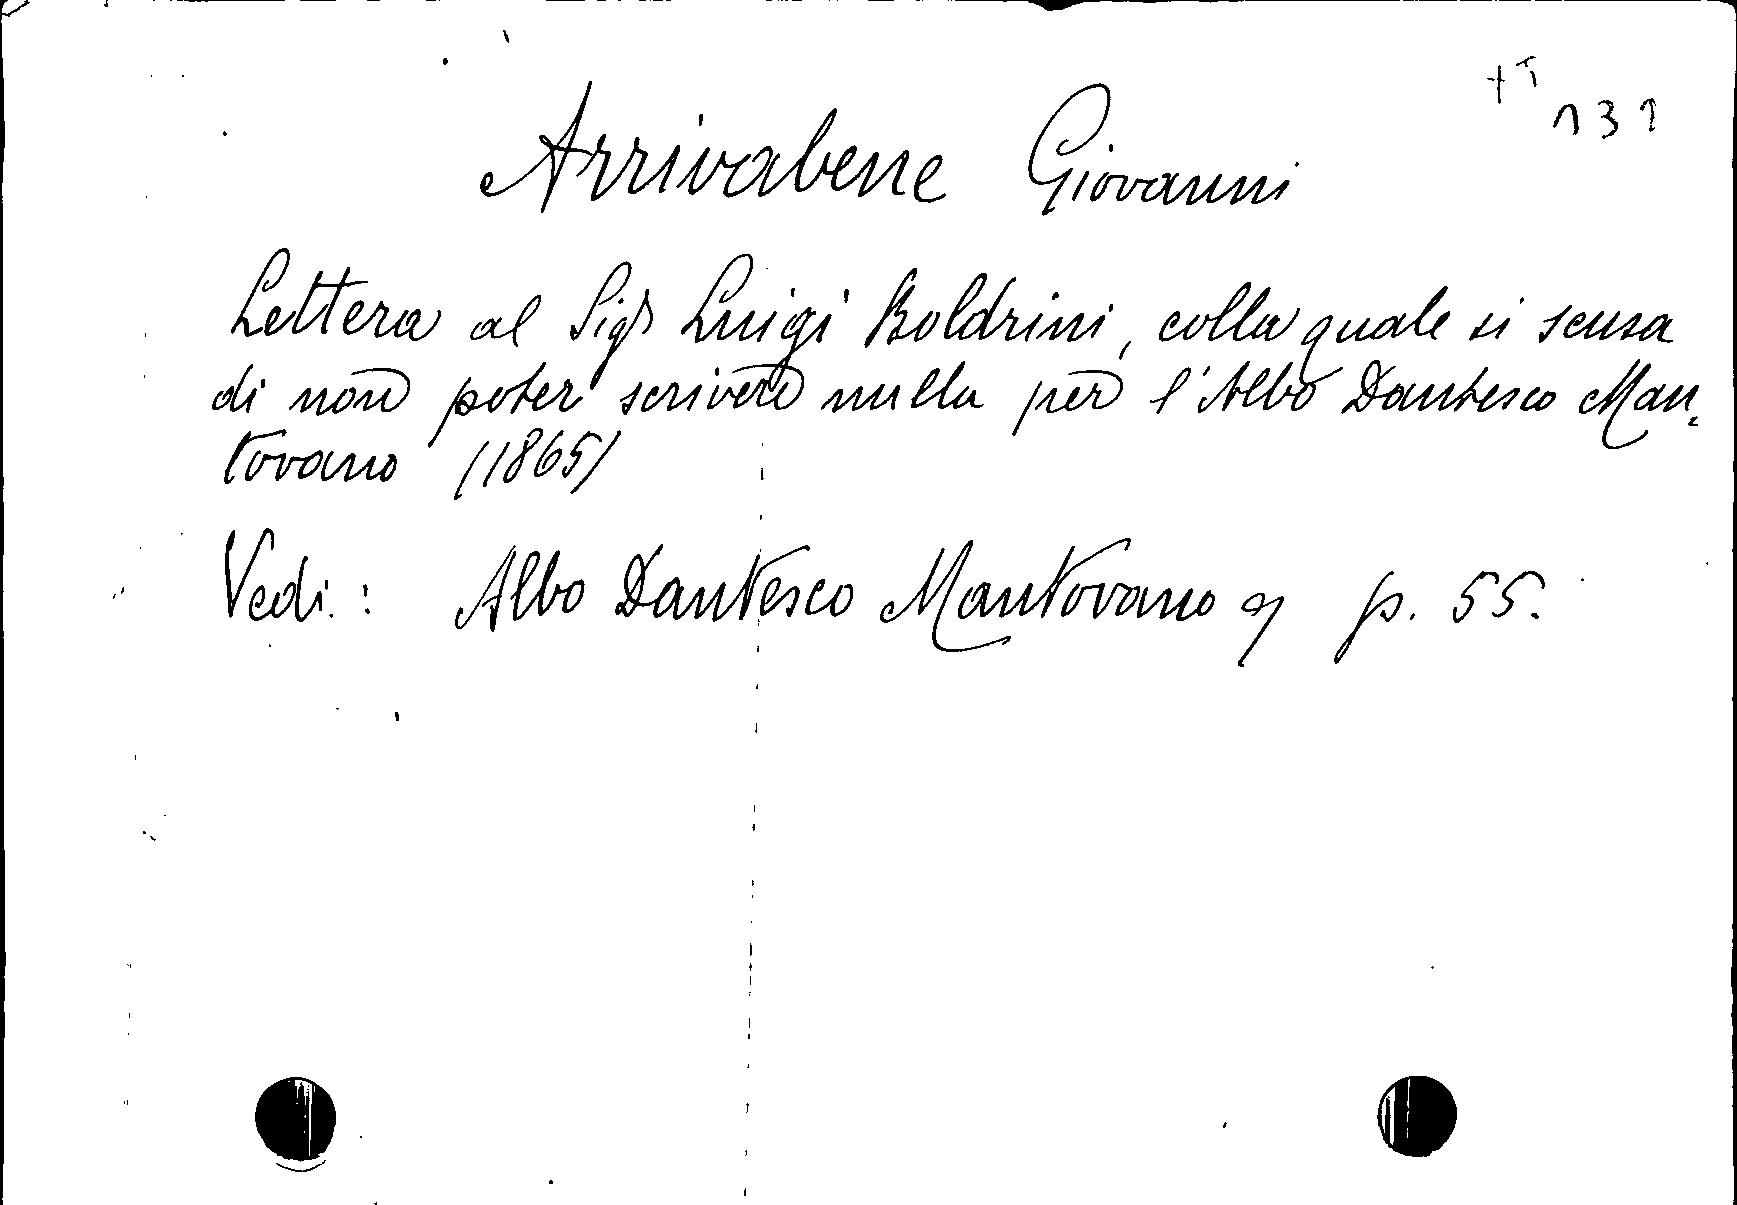 131
Arrivabene Giovanni
Lettera al Sigr Luigi Boldrini, colla quale si scusa
di non poter scrivere nulla per l'Albo Dantesco Man-
tovano (1865)
Vedi: Albo Dantesco Mantovano p. 55.